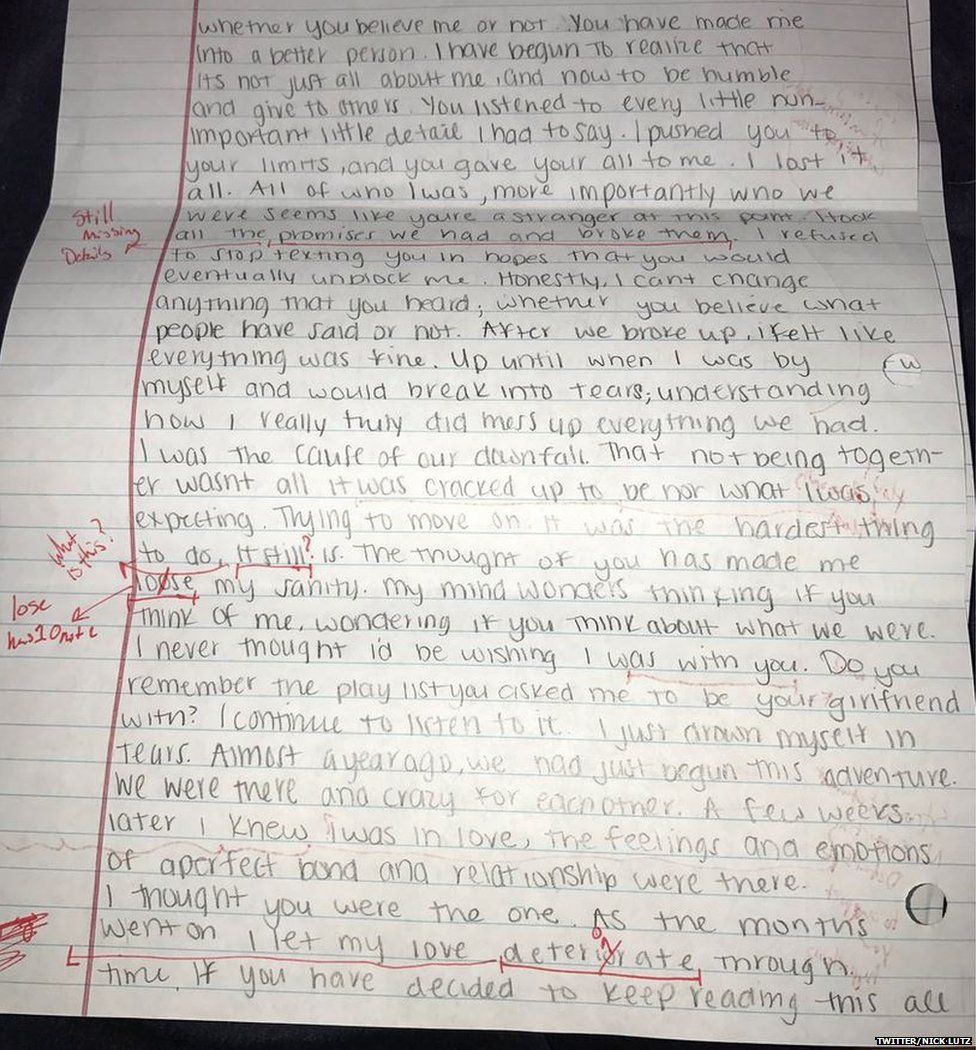 whether you believe me or not. You have made me
into a better person. I have begun to realize that
its not just all about me, and now to be humble
and give to others. You listened to every little nun-
important little detail I had to say. I pushed you to
your limits, and you gave your all to me. I lost it
all. All of who I was, more importantly who we
were seems like youre a stranger at this point. I took
Still
Missing
Details
all the promises we had and broke them. I refused
to stop texting you in hopes that you would
eventually unblock me. Honestly, I cant change
anything that you heard; whether you believe what
people have said or not. After we broke up, i felt like
everything was fine. Up until when I was by
myself and would break into tears; understanding
how I really truly did mess up everything we had.
I was the cause of our downfall. That not being togeth-
er wasnt all it was cracked up to be nor what I was
expecting. Trying to move on. It was the hardest thing
What
is this?
to do, it still? is. The thought of you has made me
loose my sanity. My mind wonders thinking if you
lose
has 1 O not 2
think of me, wondering if you think about what we were.
I never thought id be wishing I was with you. Do you
remember the play list you asked me to be your girlfriend
with? I continue to listen to it. I just drown myself in
tears. Almost a year ago, we had just begun this adventure.
We were there and crazy for eachother. A few weeks
later I knew I was in love, the feelings and emotions
of a perfect bond and relationship were there.
I thought you were the one. As the months
went on I let my love deteriorate through
time. If you have decided to keep reading this all
TWITTER/NICK LUTZ